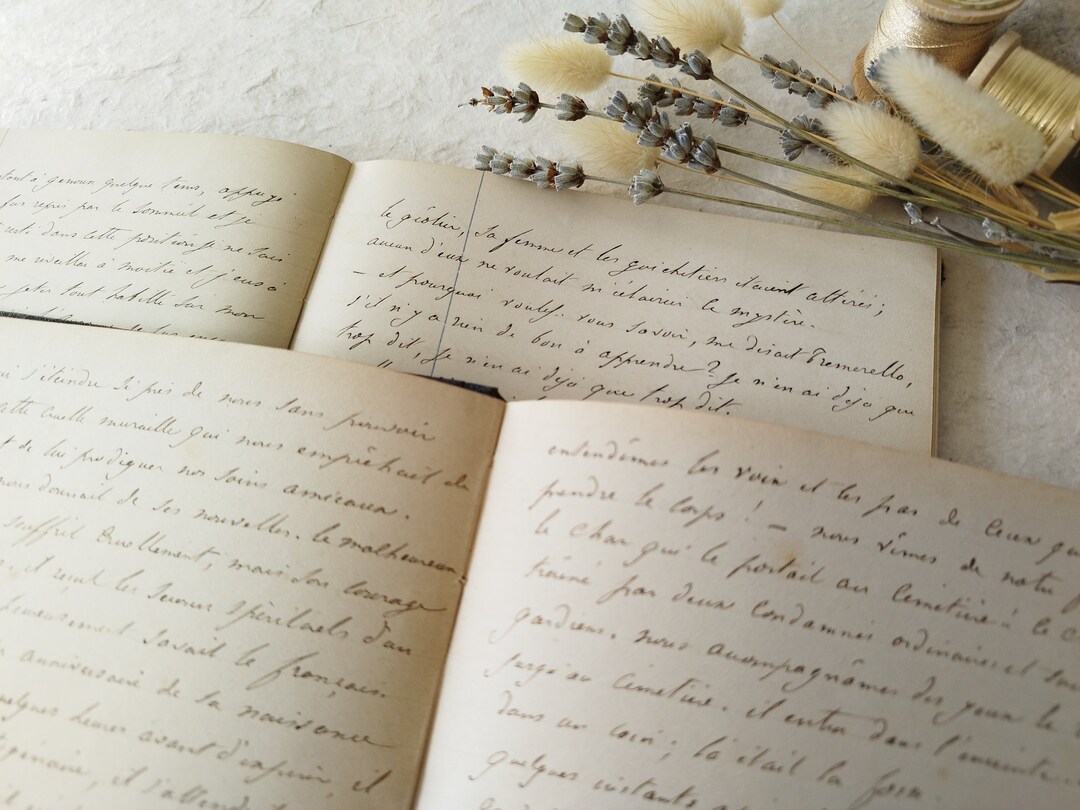 quelque tems, appuyé
par le sommeil et je
resté dans cette position je ne sais
me reveillai à moitié et j'eus
tout habillé sur mon
le géolier, sa femme et les guichetiers étaient attérés;
aucun d'eux ne voulait m'éclaircir le mystère.
— et pourquoi voulez-vous savoir, me disait Tremerello,
s'il n'y a rien de bon à apprendre? je n'en ai déjà que
trop dit, je n'en ai déjà que trop dit.
s'éteindre si près de nous sans pouvoir
cette cruelle muraille qui nous empêchait de
de lui prodiguer nos soins amicaux.
nous donnait de ses nouvelles. le malheureux
souffrit cruellement, mais son courage
il reçut les secours spirituels d'un
heureusement savait le français.
anniversaire de sa naissance
quelques heures avant d'expirer, il
il s'attendri
entendîmes les voix et les pas de ceux qui
prendre le corps! — nous vîmes de notre
le char qui le portait au cimetière; le
trainé par deux condamnés ordinaires et
gardiens. nous accompagnâmes des yeux le
jusqu'au cimetière. il entra dans l'enceinte
dans un coin; là était la fosse.
quelques instants